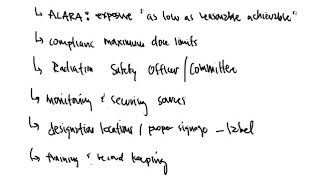 ↳ ALARA: exposure "as low as reasonable achievable"
↳ compliance maximum dose limits
↳ Radiation Safety Officer/Committee
↳ monitoring & securing sources
↳ designation locations / proper signage - label
↳ training & record keeping